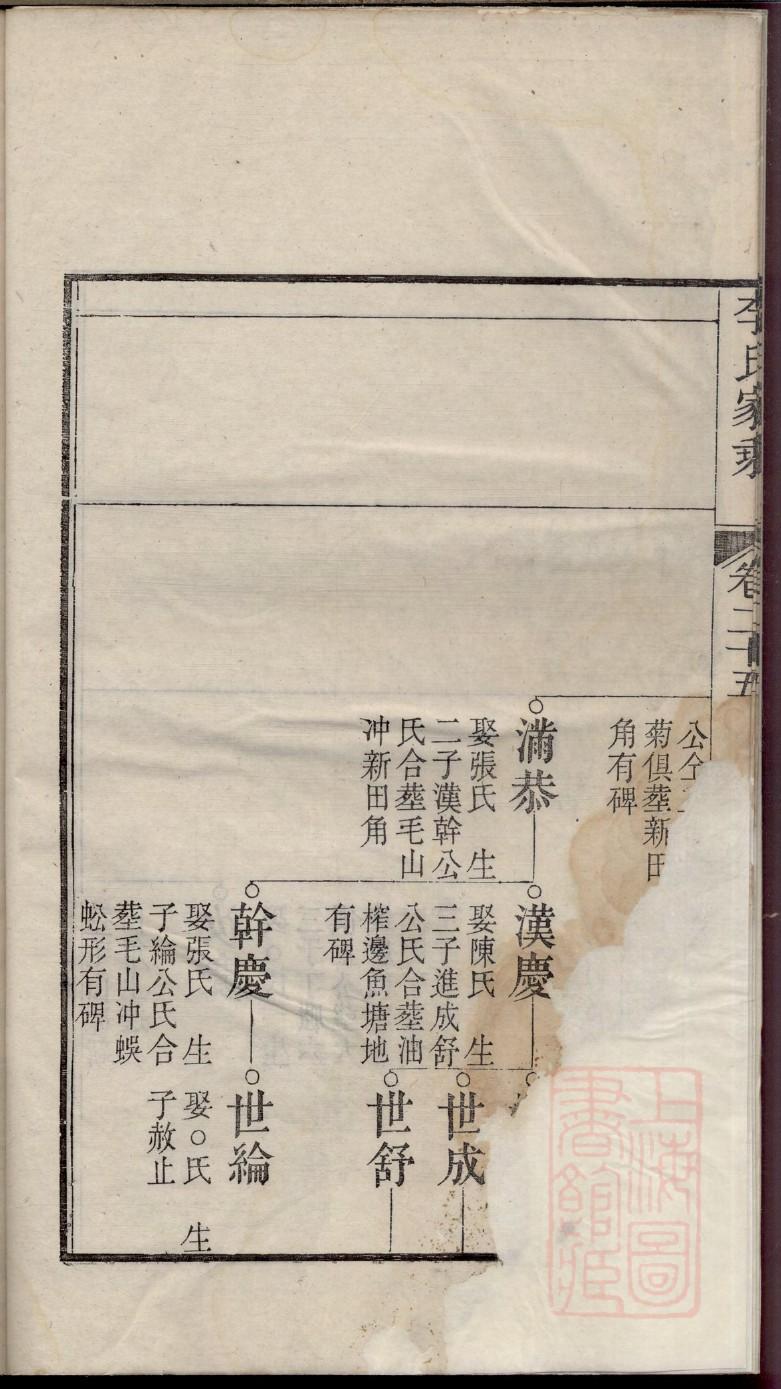 李氏家乘
卷二十五
公仝
菊俱塟新田
角有碑
滿恭
娶張氏 生
二子漢幹公
氏合塟毛山
冲新田角
漢慶
娶陳氏 生
三子進成舒
公氏合塟油
榨邊魚塘地
有碑
世成
世舒
幹慶
娶張氏 生
子綸公氏合
塟毛山冲蜈
蚣形有碑
世綸
娶○氏 生
子赦止
上海圖
書館藏